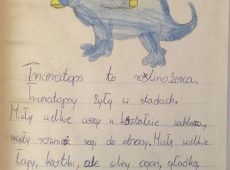 Triceratops to roślinożerca.
Triceratopsy żyły w stadach.
Miały wielkie uszy w kształcie wachlarza,
miały również rogi do obrony. Miały wielkie
łapy, krótki, ale silny ogon, gładką